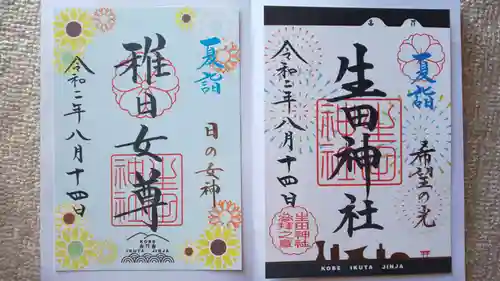 夏詣
稚日女尊
日の女神
令和二年八月十四日
KOBE
IKUTA JINJA
夏詣
生田神社
希望の光
令和二年八月十四日
生田神社
KOBE IKUTA JINJA